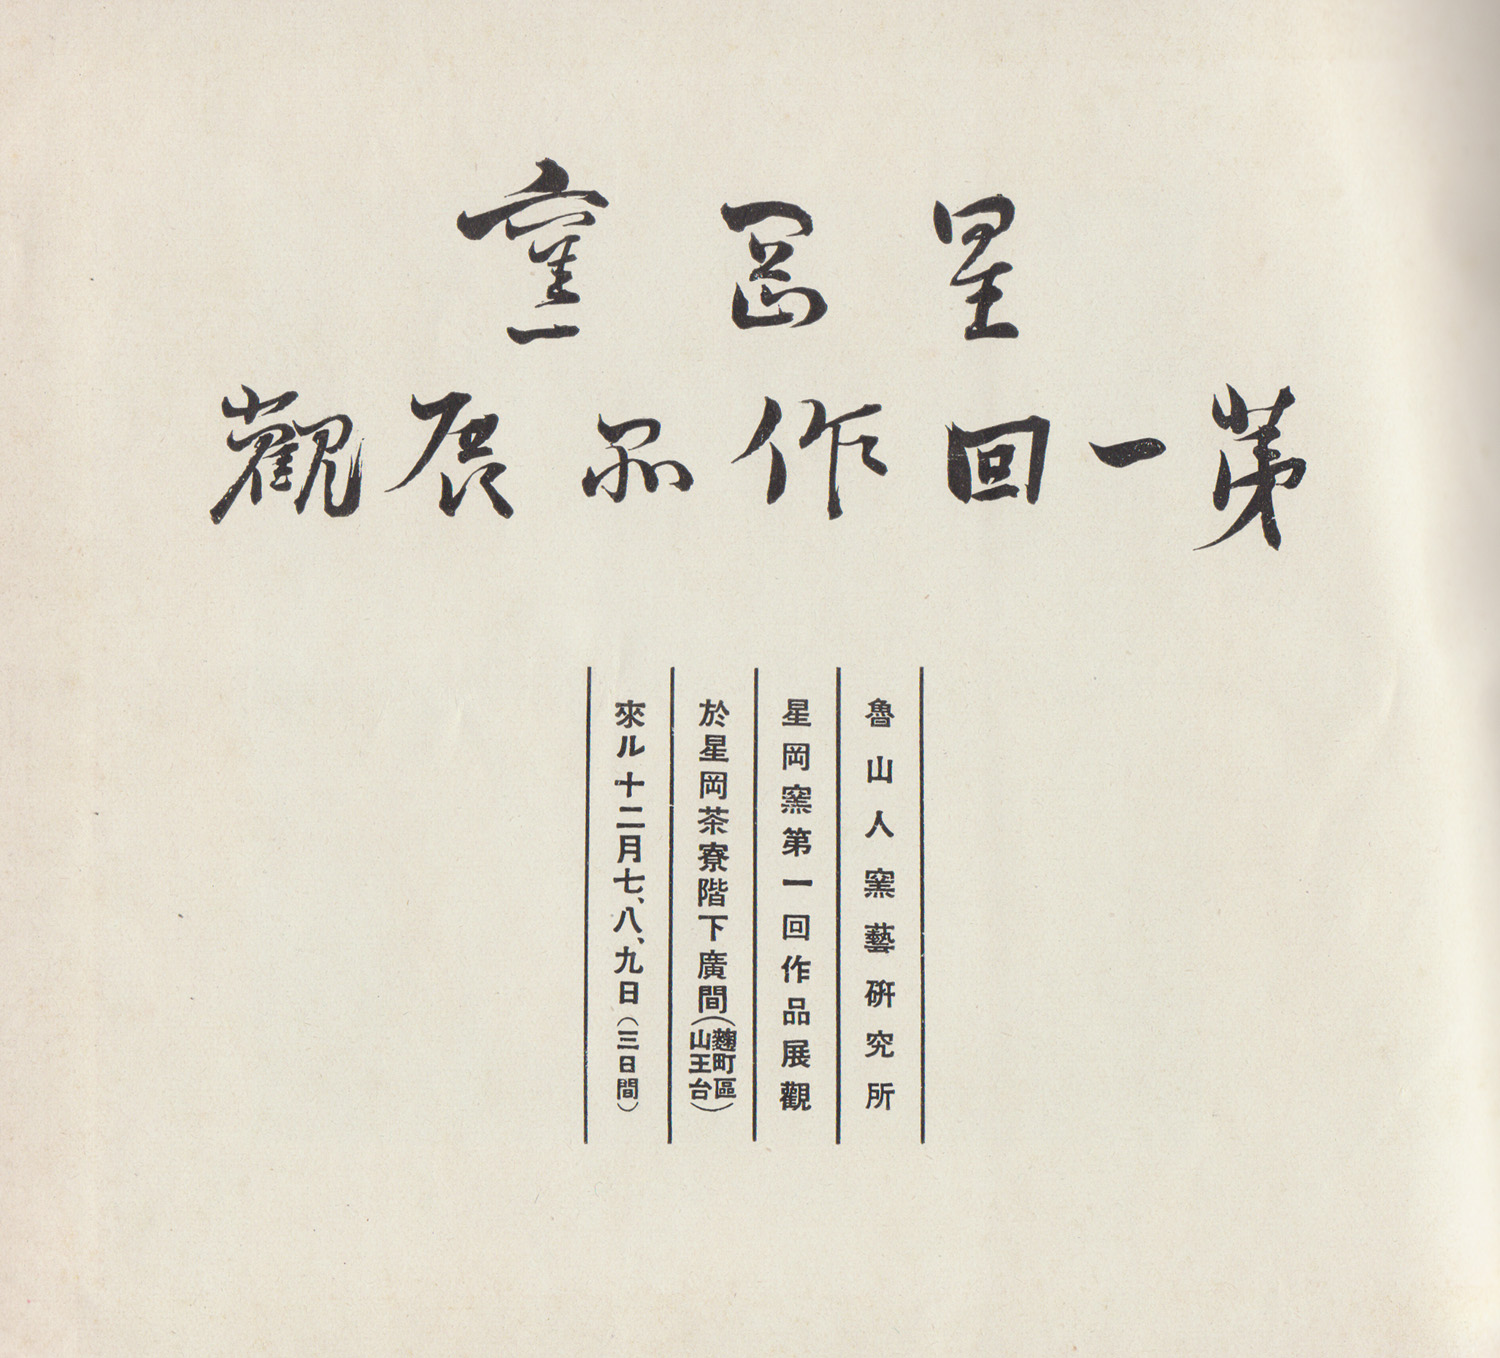 星岡窯
第一回作品展觀
魯山人窯藝硏究所
星岡窯第一回作品展觀
於星岡茶寮階下廣間(麴町區山王台)
來ル十二月七、八、九日(三日間)